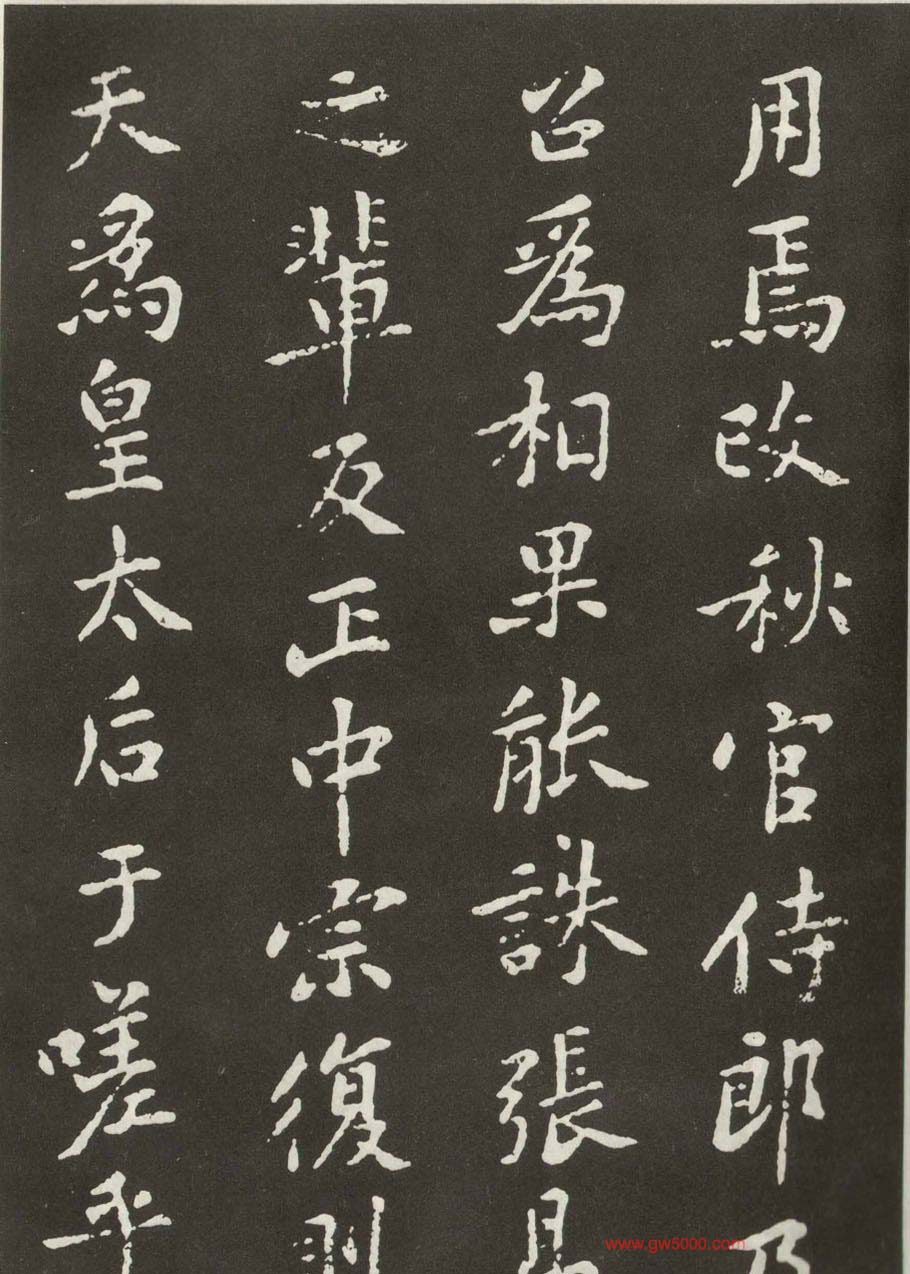 用焉改秋官侍郎乃
召爲相果能誅張易
之輩反正中宗復則
天爲皇太后于嗟乎
www.gw5000.com